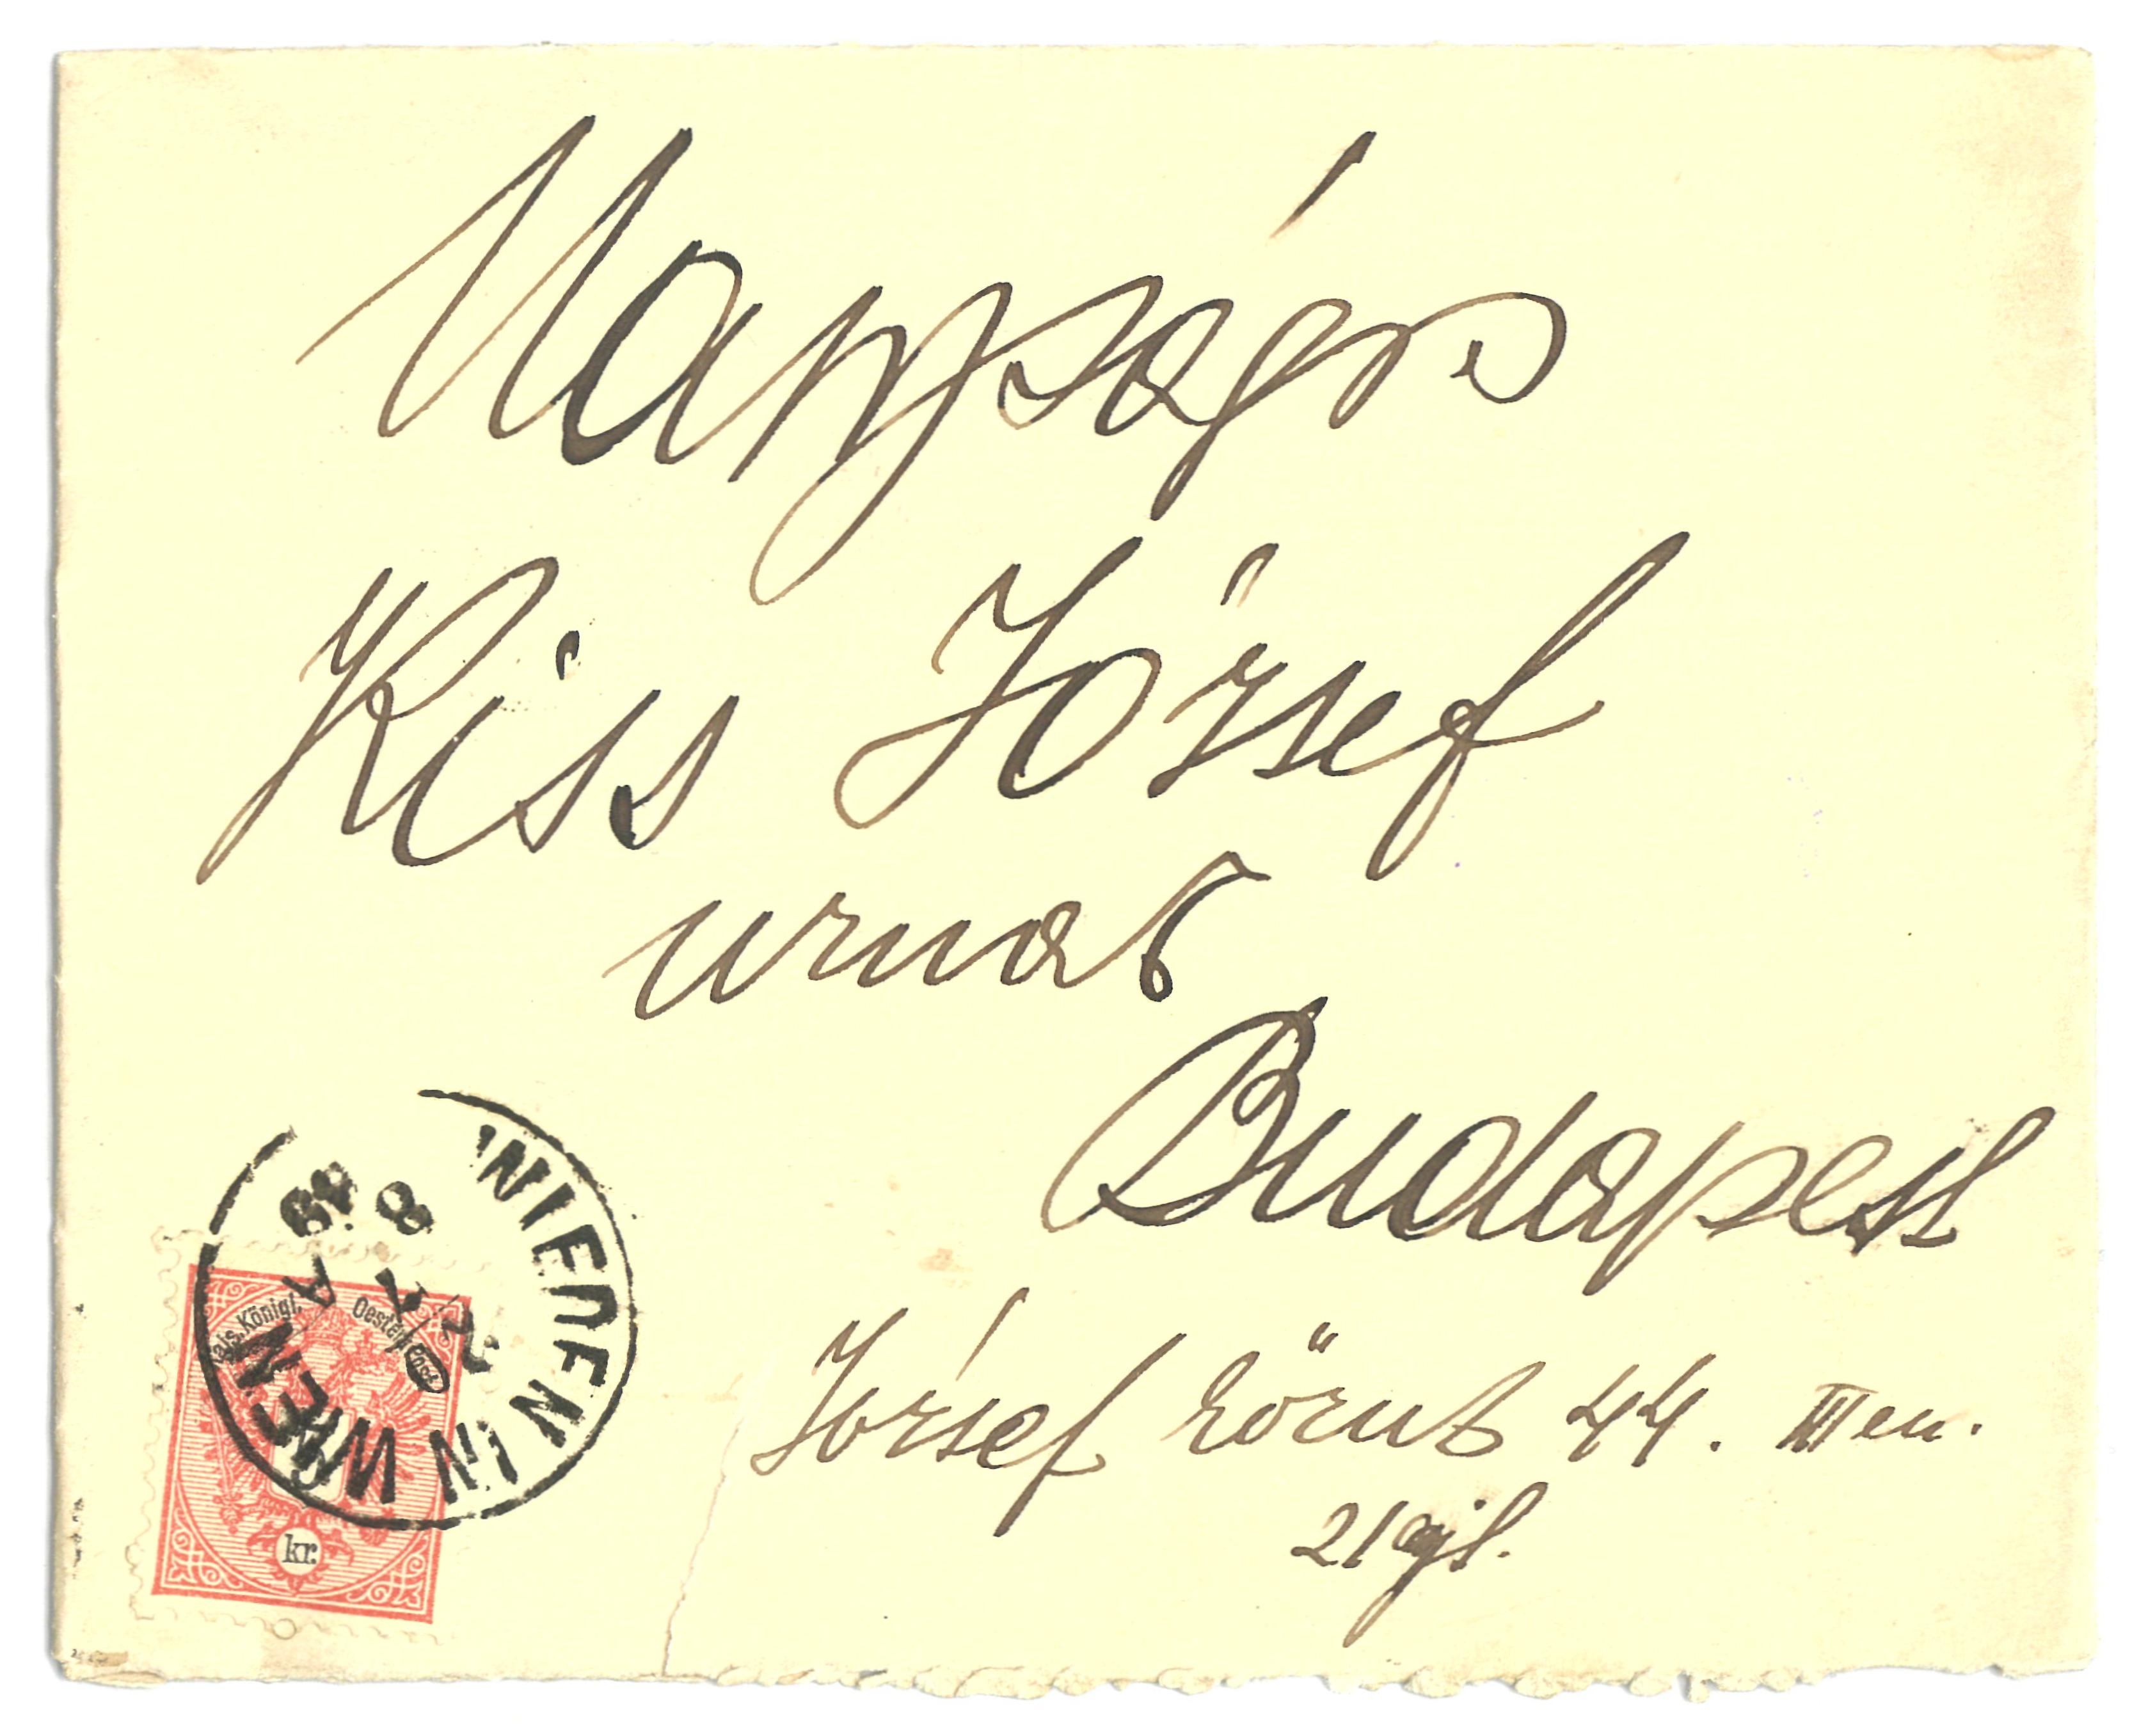 Nagyságos
Kiss József
urnak
Budapest
József körut 44. III em.
21 ajt.
WIEDEN IN WIEN
2/7
8
89
A
Kais. Königl. Oesterr. Post
kr.